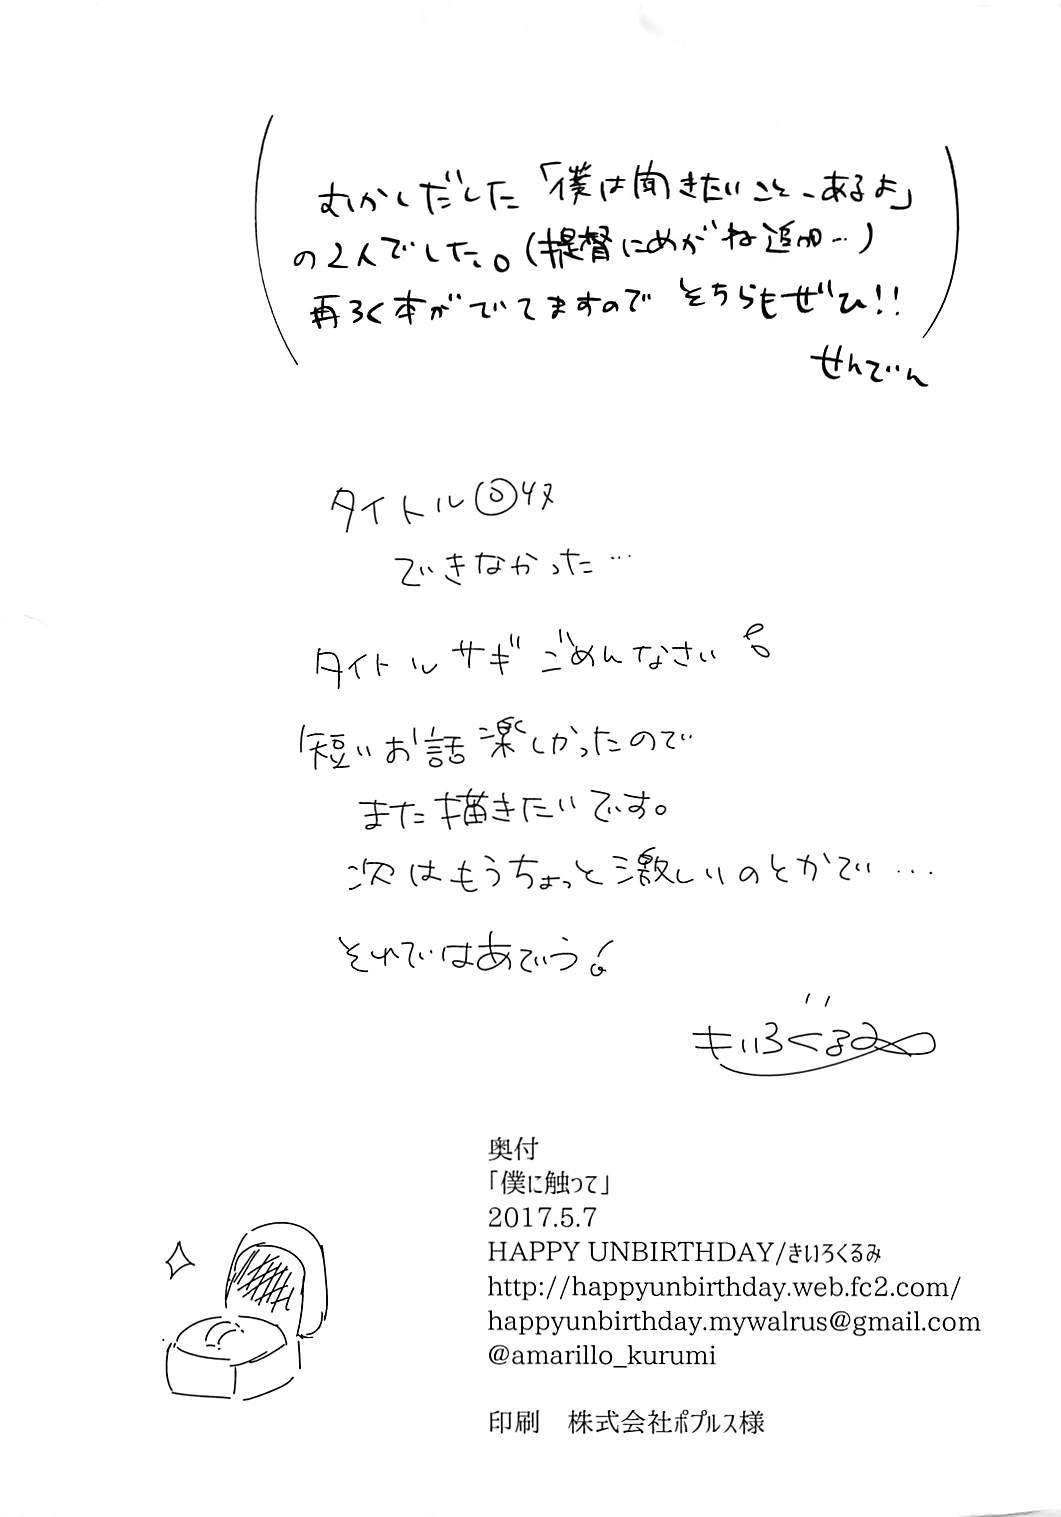 むかしだした「僕は聞きたいこと、あるよ」
の2人でした。(提督にめがね追加…)
再ろく本がでてますので そちらもぜひ!!
せんでん
タイトル回収
できなかった…
タイトルサギごめんなさい
短いお話楽しかったので
また描きたいです。
次はもうちょっと激しいのとかで…
それではあでぅ!
きいろくるみ
奥付
「僕に触って」
2017.5.7
HAPPY UNBIRTHDAY/きいろくるみ
http://happyunbirthday.web.fc2.com/
happyunbirthday.mywalrus@gmail.com
@amarillo_kurumi
印刷　株式会社ポプルス様